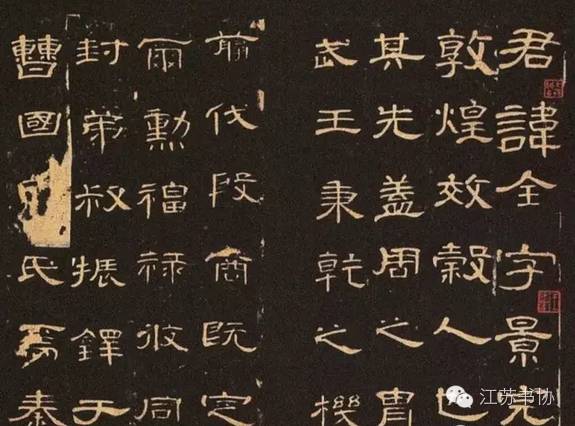 君諱全字景完
敦煌效穀人也
其先蓋周之胄
武王秉乾之機
翦伐殷商既定
爾勳福祿攸同
封弟叔振鐸于
曹國因氏焉秦
江苏书协